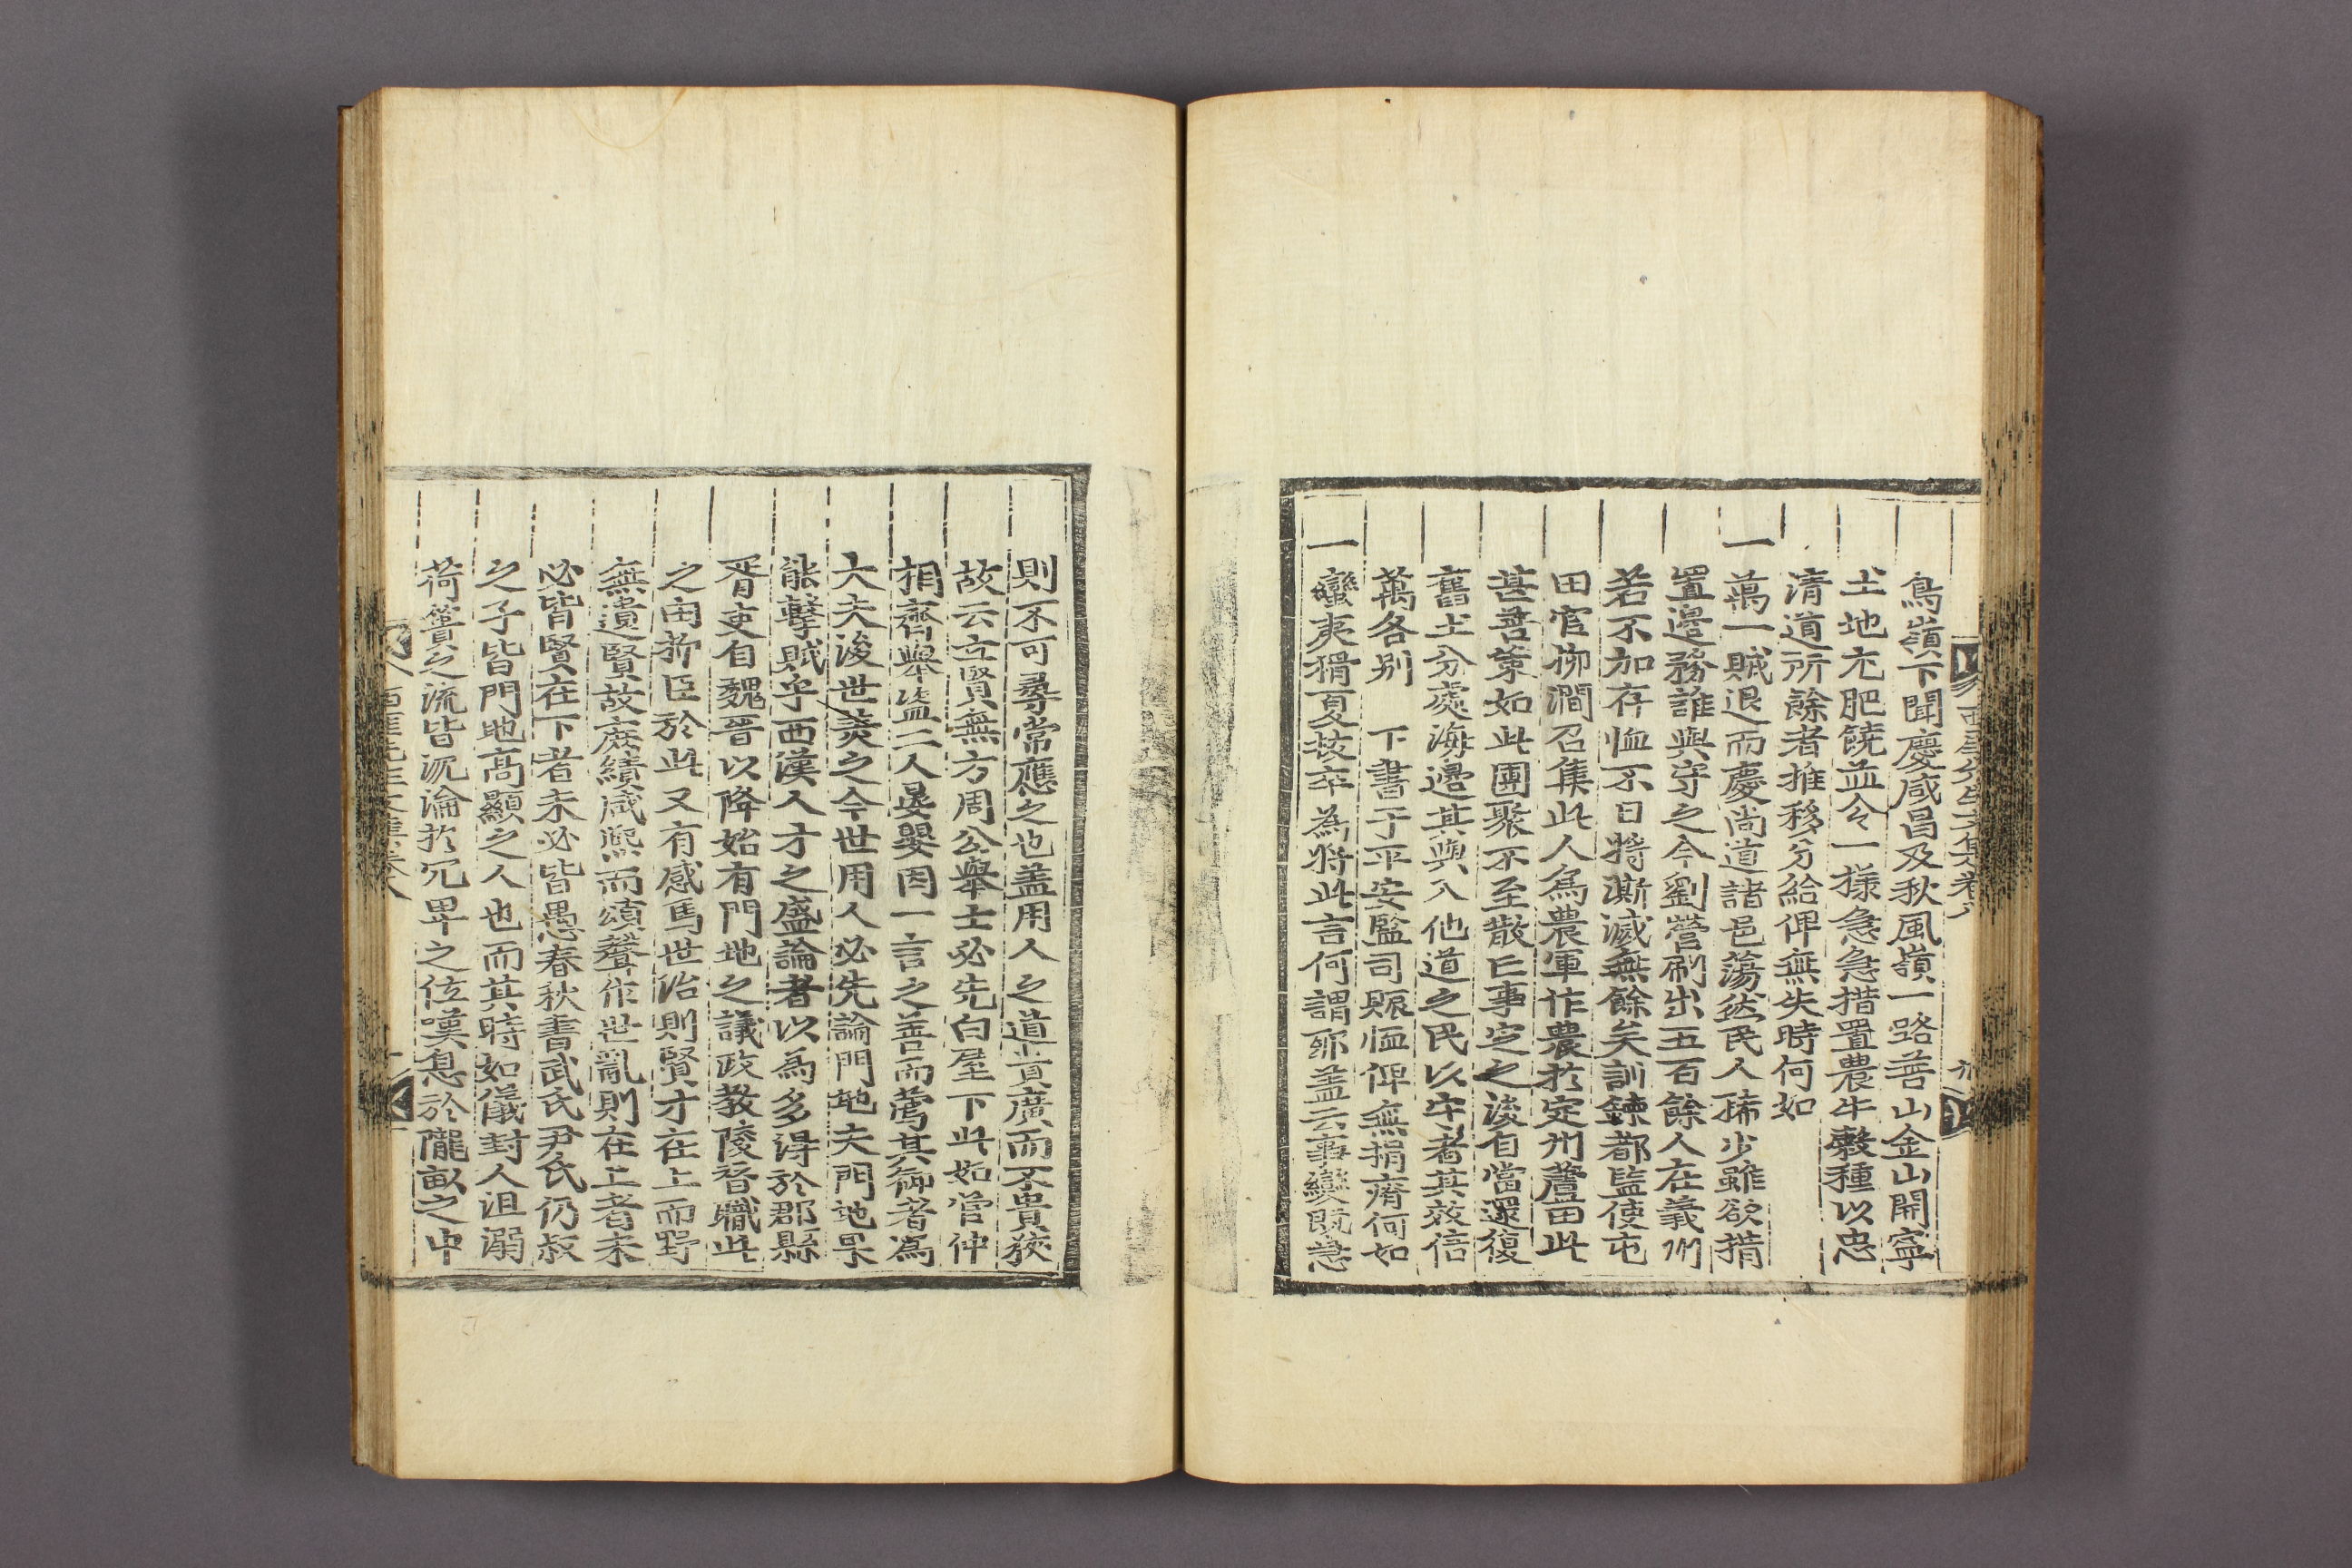 西厓先生文集卷八
鳥嶺下聞慶咸昌及秋風嶺一路善山金山開寧
土地尤肥饒並令一樣急急措置農牛穀種以忠
清道所餘者推移分給俾無失時何如
一萬一賊退而慶尚道諸邑蕩然民人稀少雖欲措
置邊務誰與守之今劉營刷出五百餘人在義州
若不加存恤不日將澌滅無餘矣訓鍊都監使屯
田官柳澗召集此人為農軍作農於定州蘆田此
甚善策如此團聚不至散亡事定之後自當還復
舊土分處海邊其與入他道之民以守者其效倍
萬各別 下書于平安監司賑恤俾無捐瘠何如
一蠻夷猾夏故卒為將此言何謂耶蓋云事變既急
則不可尋常應之也蓋用人之道貴廣而不貴狹
故云立賢無方周公舉士必先白屋下此如管仲
相齊舉盜二人晏嬰因一言之善而薦其御者為
大夫後世羙之今世用人必先論門地夫門地果
能擊賊乎西漢人才之盛論者以為多得於郡縣
胥吏自魏晉以降始有門地之議政教陵替職此
之由抑臣於此又有感焉世治則賢才在上而野
無遺賢故庶績咸熙而頌聲作世亂則在上者未
必皆賢在下者未必皆愚春秋書武氏尹氏仍叔
之子皆門地高顯之人也而其時如儀封人沮溺
荷簣之流皆沉淪於冗卑之位嘆息於隴畝之中
西厓先生文集卷八